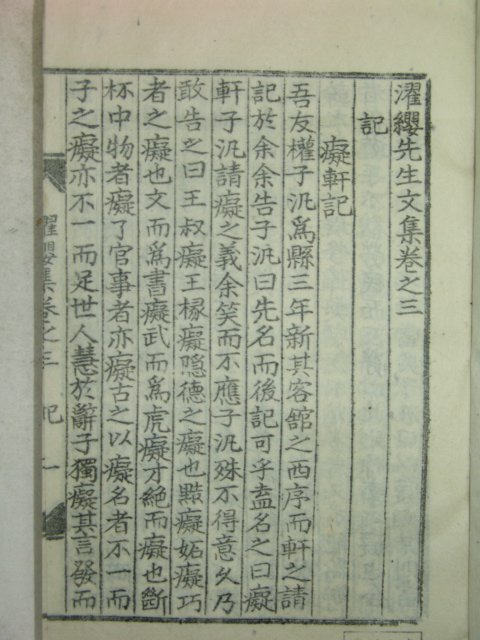 濯纓先生文集卷之三
記
癡軒記
吾友權子汎爲縣三年新其客舘之西序而軒之請
記於余余告子汎曰先名而後記可乎盍名之曰癡
軒子汎請癡之義余笑而不應子汎殊不得意久乃
敢告之曰王叔癡王椽癡隐德之癡也黠癡妬癡巧
者之癡也文而爲書癡武而爲虎癡才絶而癡也斷
杯中物者癡了官事者亦癡古之以癡名者不一而
子之癡亦不一而足世人慧於辭子獨癡其言發而
濯纓集卷之三 記 一